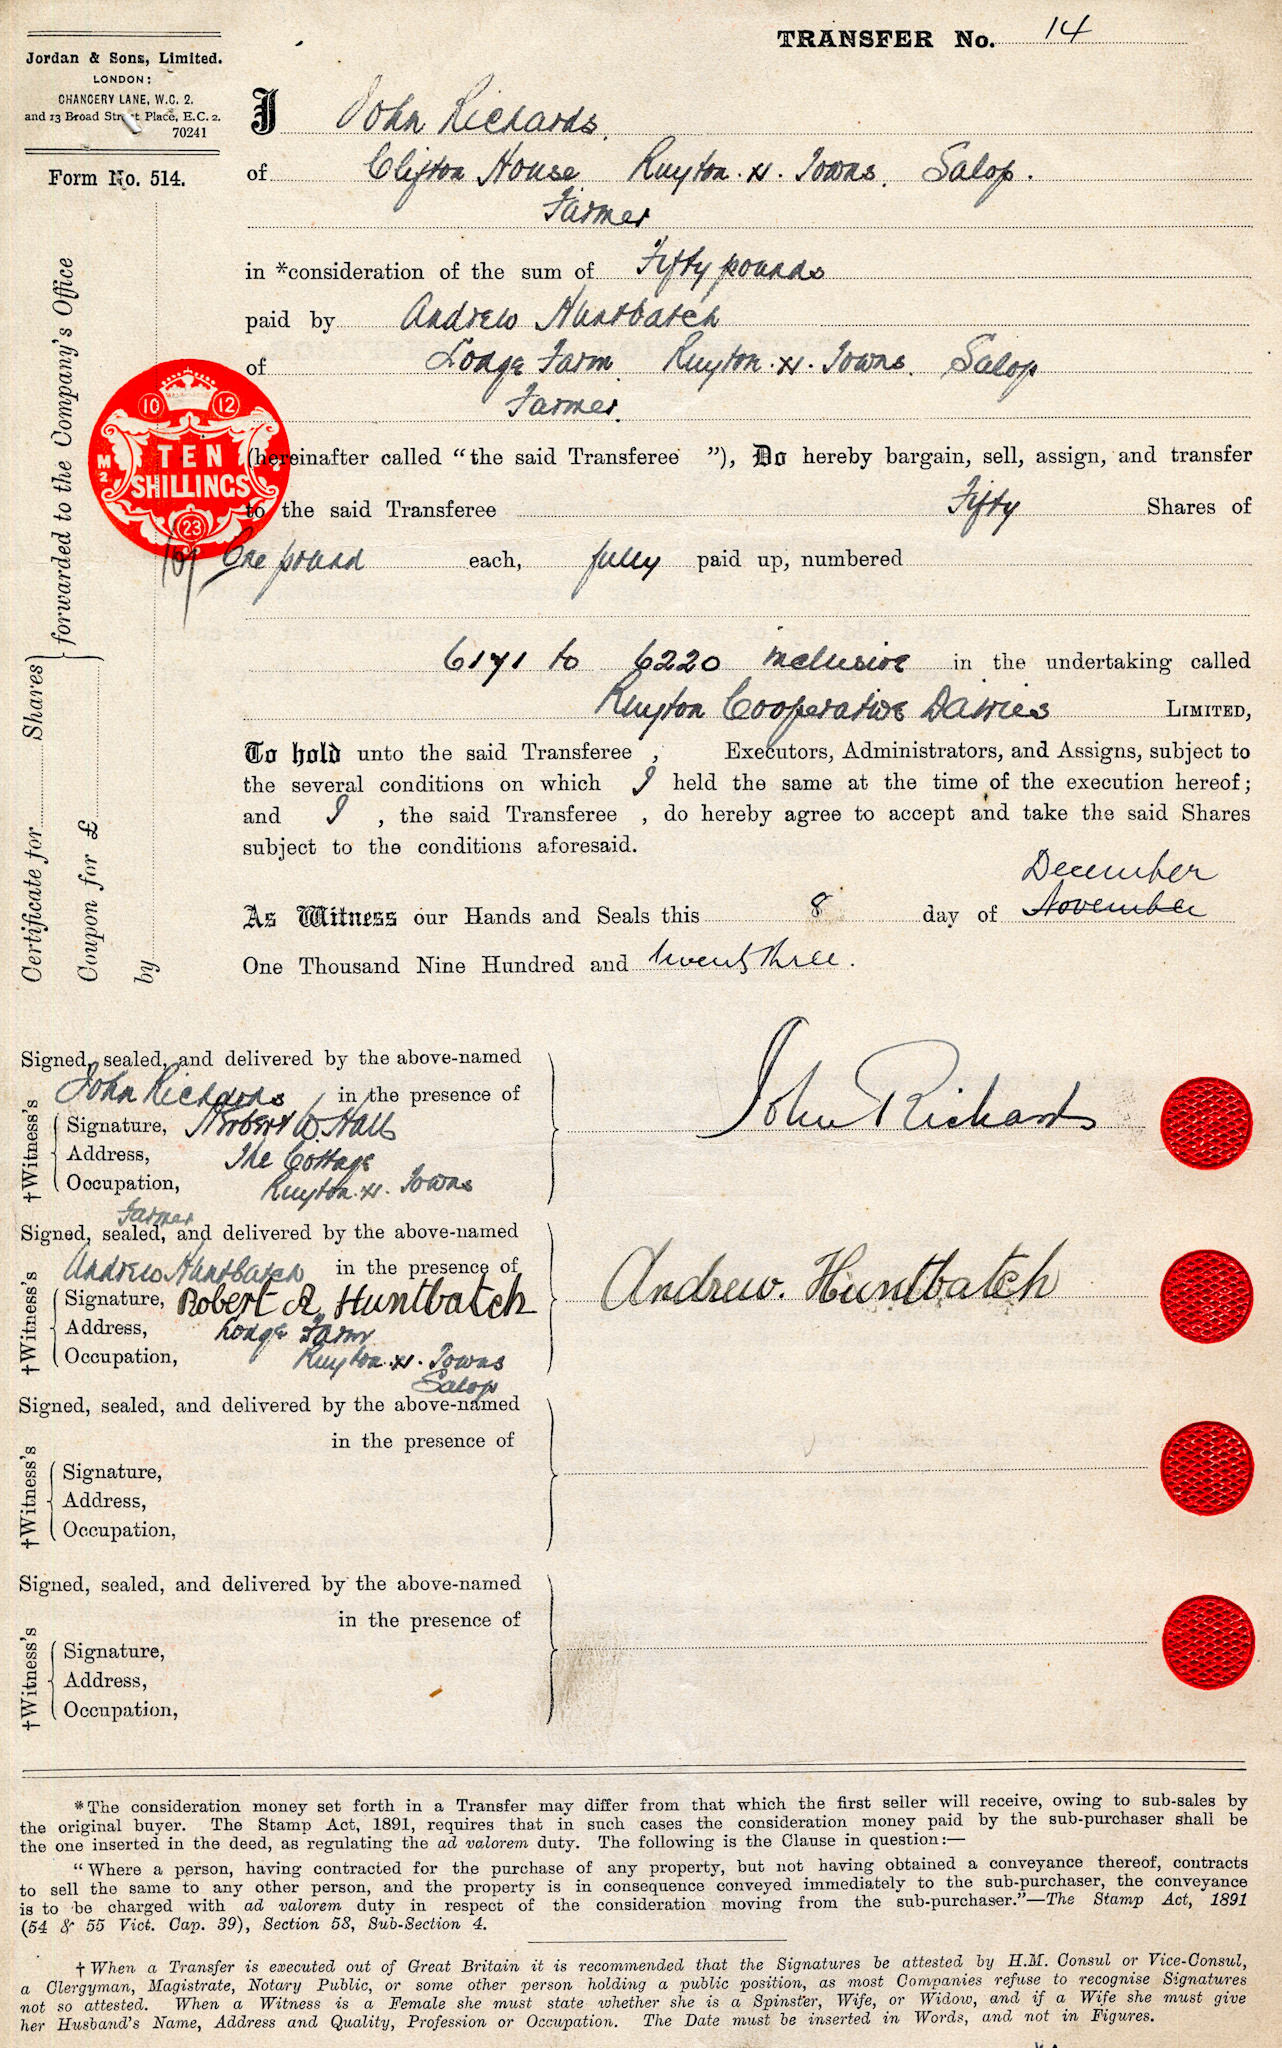 TRANSFER No. 14
Jordan & Sons, Limited.
LONDON:
CHANCERY LANE, W.C. 2.
and 13 Broad Street Place, E.C. 2.
70241
Form No. 514.
I John Richards.
of Clifton House Ruyton. XI. Towns. Salop.
Farmer
in *consideration of the sum of Fifty pounds
paid by Andrew Huntbatch
of Lodge Farm Ruyton. XI. Towns. Salop
Farmer.
(hereinafter called “the said Transferee ”), Do hereby bargain, sell, assign, and transfer
to the said Transferee Fifty Shares of
One pound each, fully paid up, numbered
6171 to 6220 inclusive in the undertaking called
Ruyton Cooperative Dairies LIMITED,
To hold unto the said Transferee , Executors, Administrators, and Assigns, subject to
the several conditions on which I held the same at the time of the execution hereof;
and I , the said Transferee , do hereby agree to accept and take the said Shares
subject to the conditions aforesaid.
December
As Witness our Hands and Seals this 8 day of November
One Thousand Nine Hundred and twenty three.
10 12
M 2
TEN
SHILLINGS
23
10/
Certificate for Shares
Coupon for £
forwarded to the Company's Office
by
Signed, sealed, and delivered by the above-named
John Richards in the presence of
†Witness's
Signature, Herbert W. Halls
Address, The Cottage
Occupation, Ruyton. XI. Towns
Farmer
John Richards
Signed, sealed, and delivered by the above-named
Andrew Huntbatch in the presence of
†Witness's
Signature, Robert A Huntbatch
Address, Lodge Farm
Occupation, Ruyton. XI. Towns
Salop
Andrew. Huntbatch
Signed, sealed, and delivered by the above-named
in the presence of
†Witness's
Signature,
Address,
Occupation,
Signed, sealed, and delivered by the above-named
in the presence of
†Witness's
Signature,
Address,
Occupation,
*The consideration money set forth in a Transfer may differ from that which the first seller will receive, owing to sub-sales by
the original buyer. The Stamp Act, 1891, requires that in such cases the consideration money paid by the sub-purchaser shall be
the one inserted in the deed, as regulating the ad valorem duty. The following is the Clause in question:—
“Where a person, having contracted for the purchase of any property, but not having obtained a conveyance thereof, contracts
to sell the same to any other person, and the property is in consequence conveyed immediately to the sub-purchaser, the conveyance
is to be charged with ad valorem duty in respect of the consideration moving from the sub-purchaser.”—The Stamp Act, 1891
(54 & 55 Vict. Cap. 39), Section 58, Sub-Section 4.
†When a Transfer is executed out of Great Britain it is recommended that the Signatures be attested by H.M. Consul or Vice-Consul,
a Clergyman, Magistrate, Notary Public, or some other person holding a public position, as most Companies refuse to recognise Signatures
not so attested. When a Witness is a Female she must state whether she is a Spinster, Wife, or Widow, and if a Wife she must give
her Husband's Name, Address and Quality, Profession or Occupation. The Date must be inserted in Words, and not in Figures.